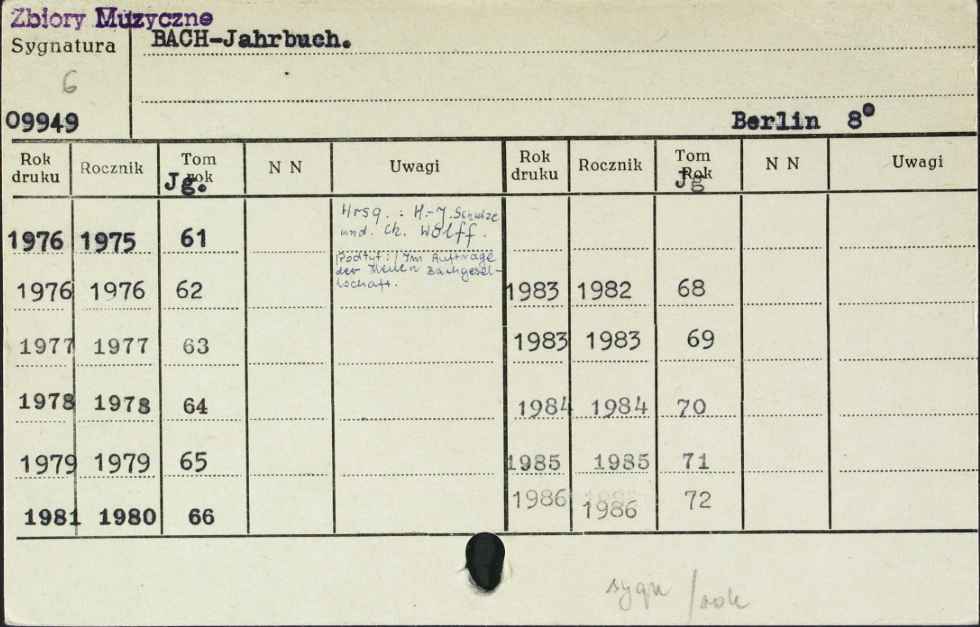 Zbiory Muzyczne
Sygnatura BACH-Jahrbuch.
6
09949 Berlin 8°
Rok druku Rocznik Tom rok Jg. N N Uwagi Rok druku Rocznik Tom Rok Jg N N Uwagi
Hrsg. : H.-J. Schulze
und. Ch. Wolff.
1976 1975 61
Podtyt.: Im Auftrage
der Neuen Bachgesel-
lschaft.
1976 1976 62 1983 1982 68
1977 1977 63 1983 1983 69
1978 1978 64 1984 1984 70
1979 1979 65 1985 1985 71
1981 1980 66 1986 1986 72
sygn /rok